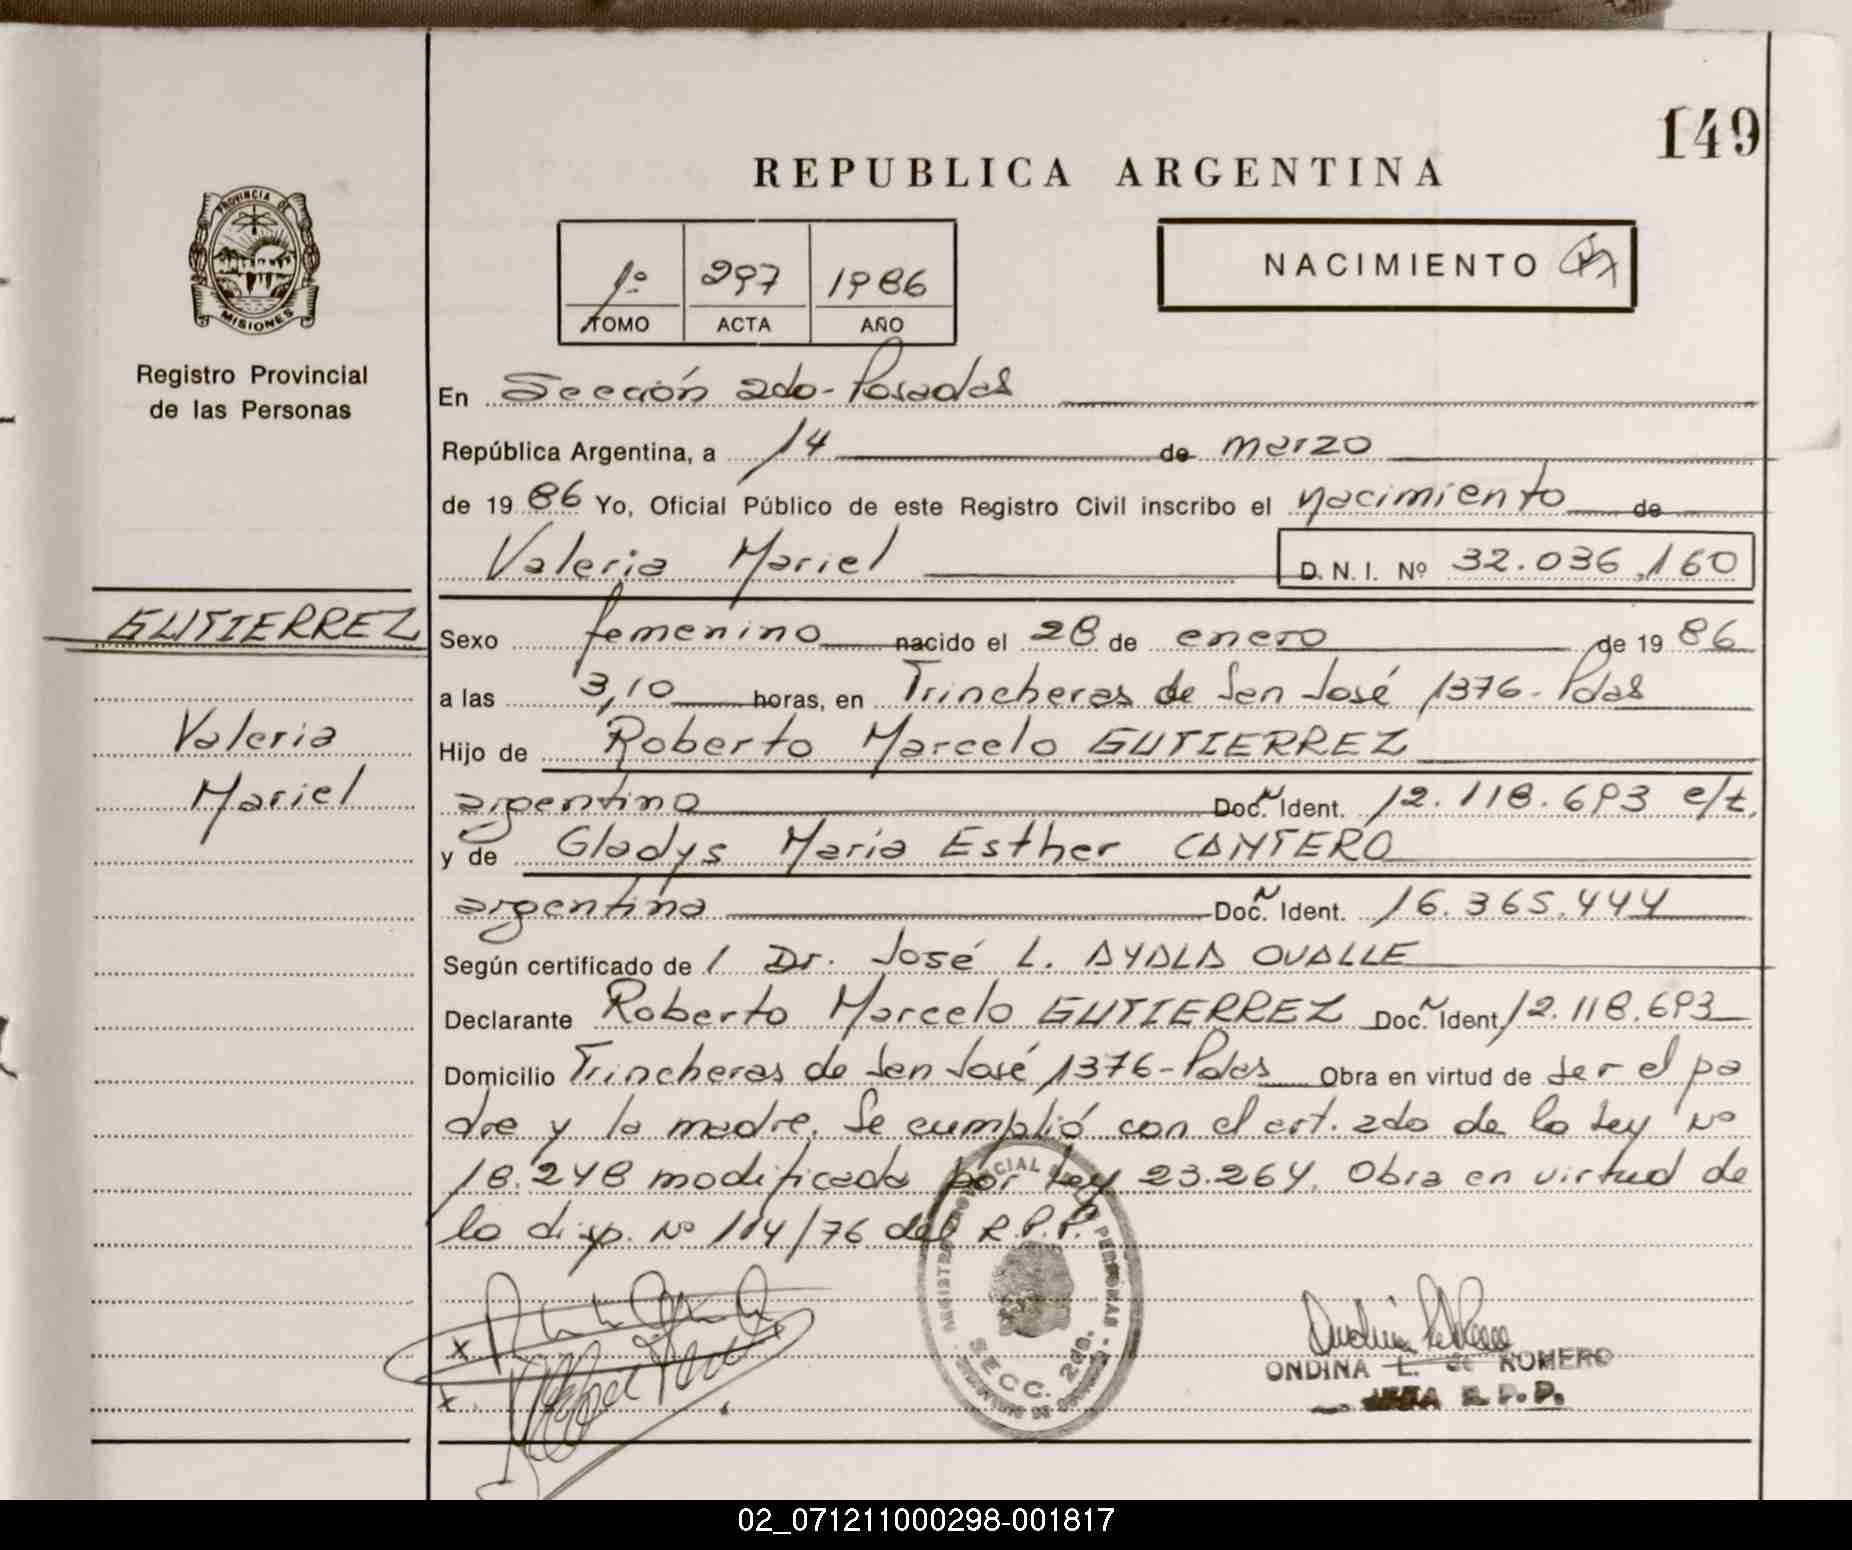 149
REPUBLICA ARGENTINA
PROVINCIA DE
MISIONES
Registro Provincial
de las Personas
1º 297 1986
TOMO ACTA AÑO
NACIMIENTO
En Sección 2do-Posadas
República Argentina, a 14 de marzo
de 1986 Yo, Oficial Público de este Registro Civil inscribo el nacimiento de
Valeria Mariel D. N. I. Nº 32.036.160
GUTIERREZ
Valeria
Mariel
Sexo femenino nacido el 28 de enero de 1986
a las 3,10 horas, en Trincheras de San José 1376-Pdas
Hijo de Roberto Marcelo GUTIERREZ
argentino Doc. Ident. 12.118.693 e/t.
y de Gladys María Esther CANTERO
argentina Doc. Ident. 16.365.444
Según certificado de / Dr. José L. AYALA OVALLE
Declarante Roberto Marcelo GUTIERREZ Doc. Ident. 12.118.693
Domicilio Trincheras de San José 1376-Pdas Obra en virtud de ser el pa
dre y la madre. Se cumplió con el art. 2do de la Ley Nº
18.248 modificada por Ley 23.264. Obra en virtud de
la disp. Nº 114/76 del R.P.P.
SECC. 2da.
ONDINA L. de ROMERO
JEFA R.P.P.
02_071211000298-001817